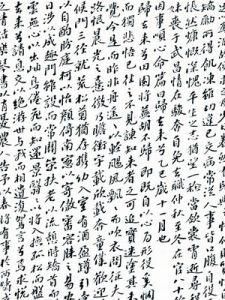 矯勵所得飢凍雖切違己交病嘗從人事皆口腹自
妹喪于武昌情在駿奔自免去職仲秋至冬在官八十
因事順心命篇曰歸去來兮
歲十一月也
歸去來兮田園將蕪胡不歸既自以心為形役奚惆
而獨悲悟已往之不諫知來者之可追實迷途其未
覺今是而昨非舟遙遙以輕颺風飄飄而吹衣問征夫
恨晨光之熹微乃瞻衡宇載欣載奔僮僕歡迎
候門三徑就荒松菊猶存攜幼入室有酒盈罇引壺
以自酌眄庭柯以怡顏倚南窗以寄傲審容膝之易安
日涉以成趣門雖設而常關策扶老以流憩時矯首而
雲無心以出岫鳥倦飛而知還景翳翳以將入撫孤松而
去來兮請息交以絕遊世與我而相違復駕言兮焉求悅
之情話樂琴書以消憂農人告余以春將有事於西疇